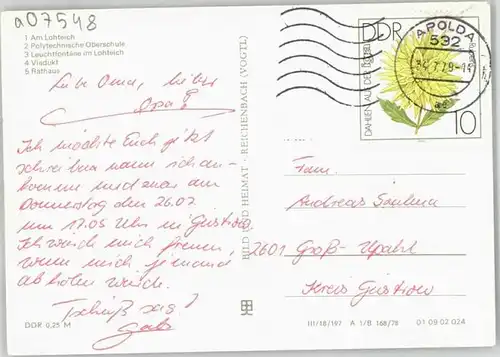 a07548
1 Am Lohteich
2 Polytechnische Oberschule
3 Leuchtfontäne im Lohteich
4 Viadukt
5 Rathaus
Liebe Oma, lieber
Opa!
Ich möchte Euch jetzt
schreiben wann ich an-
komme und zwar am
Donnerstag den 26.07.
um 17.05 Uhr in Güstrow.
Ich würde mich freuen,
wenn mich jemand
abholen würde.
Tschüß
Gabi
DDR 0,25 M
BILD UND HEIMAT · REICHENBACH (VOGTL)
APOLDA
532
DDR
DAHLIEN AUS DER DDR
10
Fam.
Andreas
2601 Groß-Upahl
Kreis Güstrow
III/18/197 A 1/B 168/78 01 09 02 024